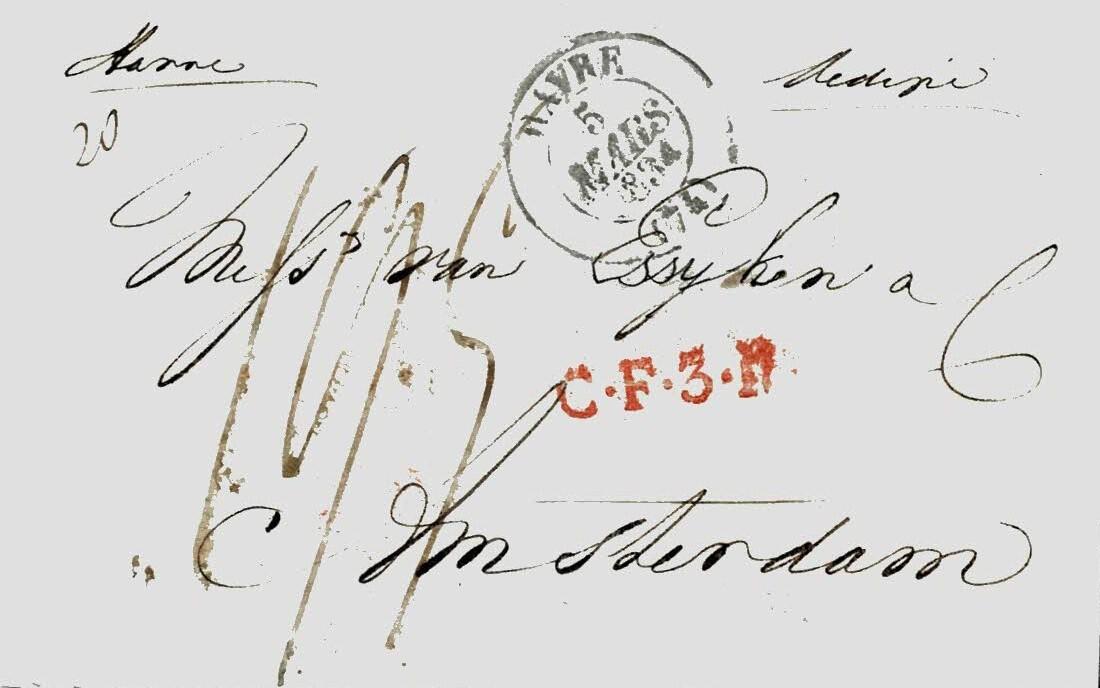 Havre
20
HAVRE
5
MARS
1834
(74)
Mess.rs van Essyken a C
C.F.3.R.
Amsterdam